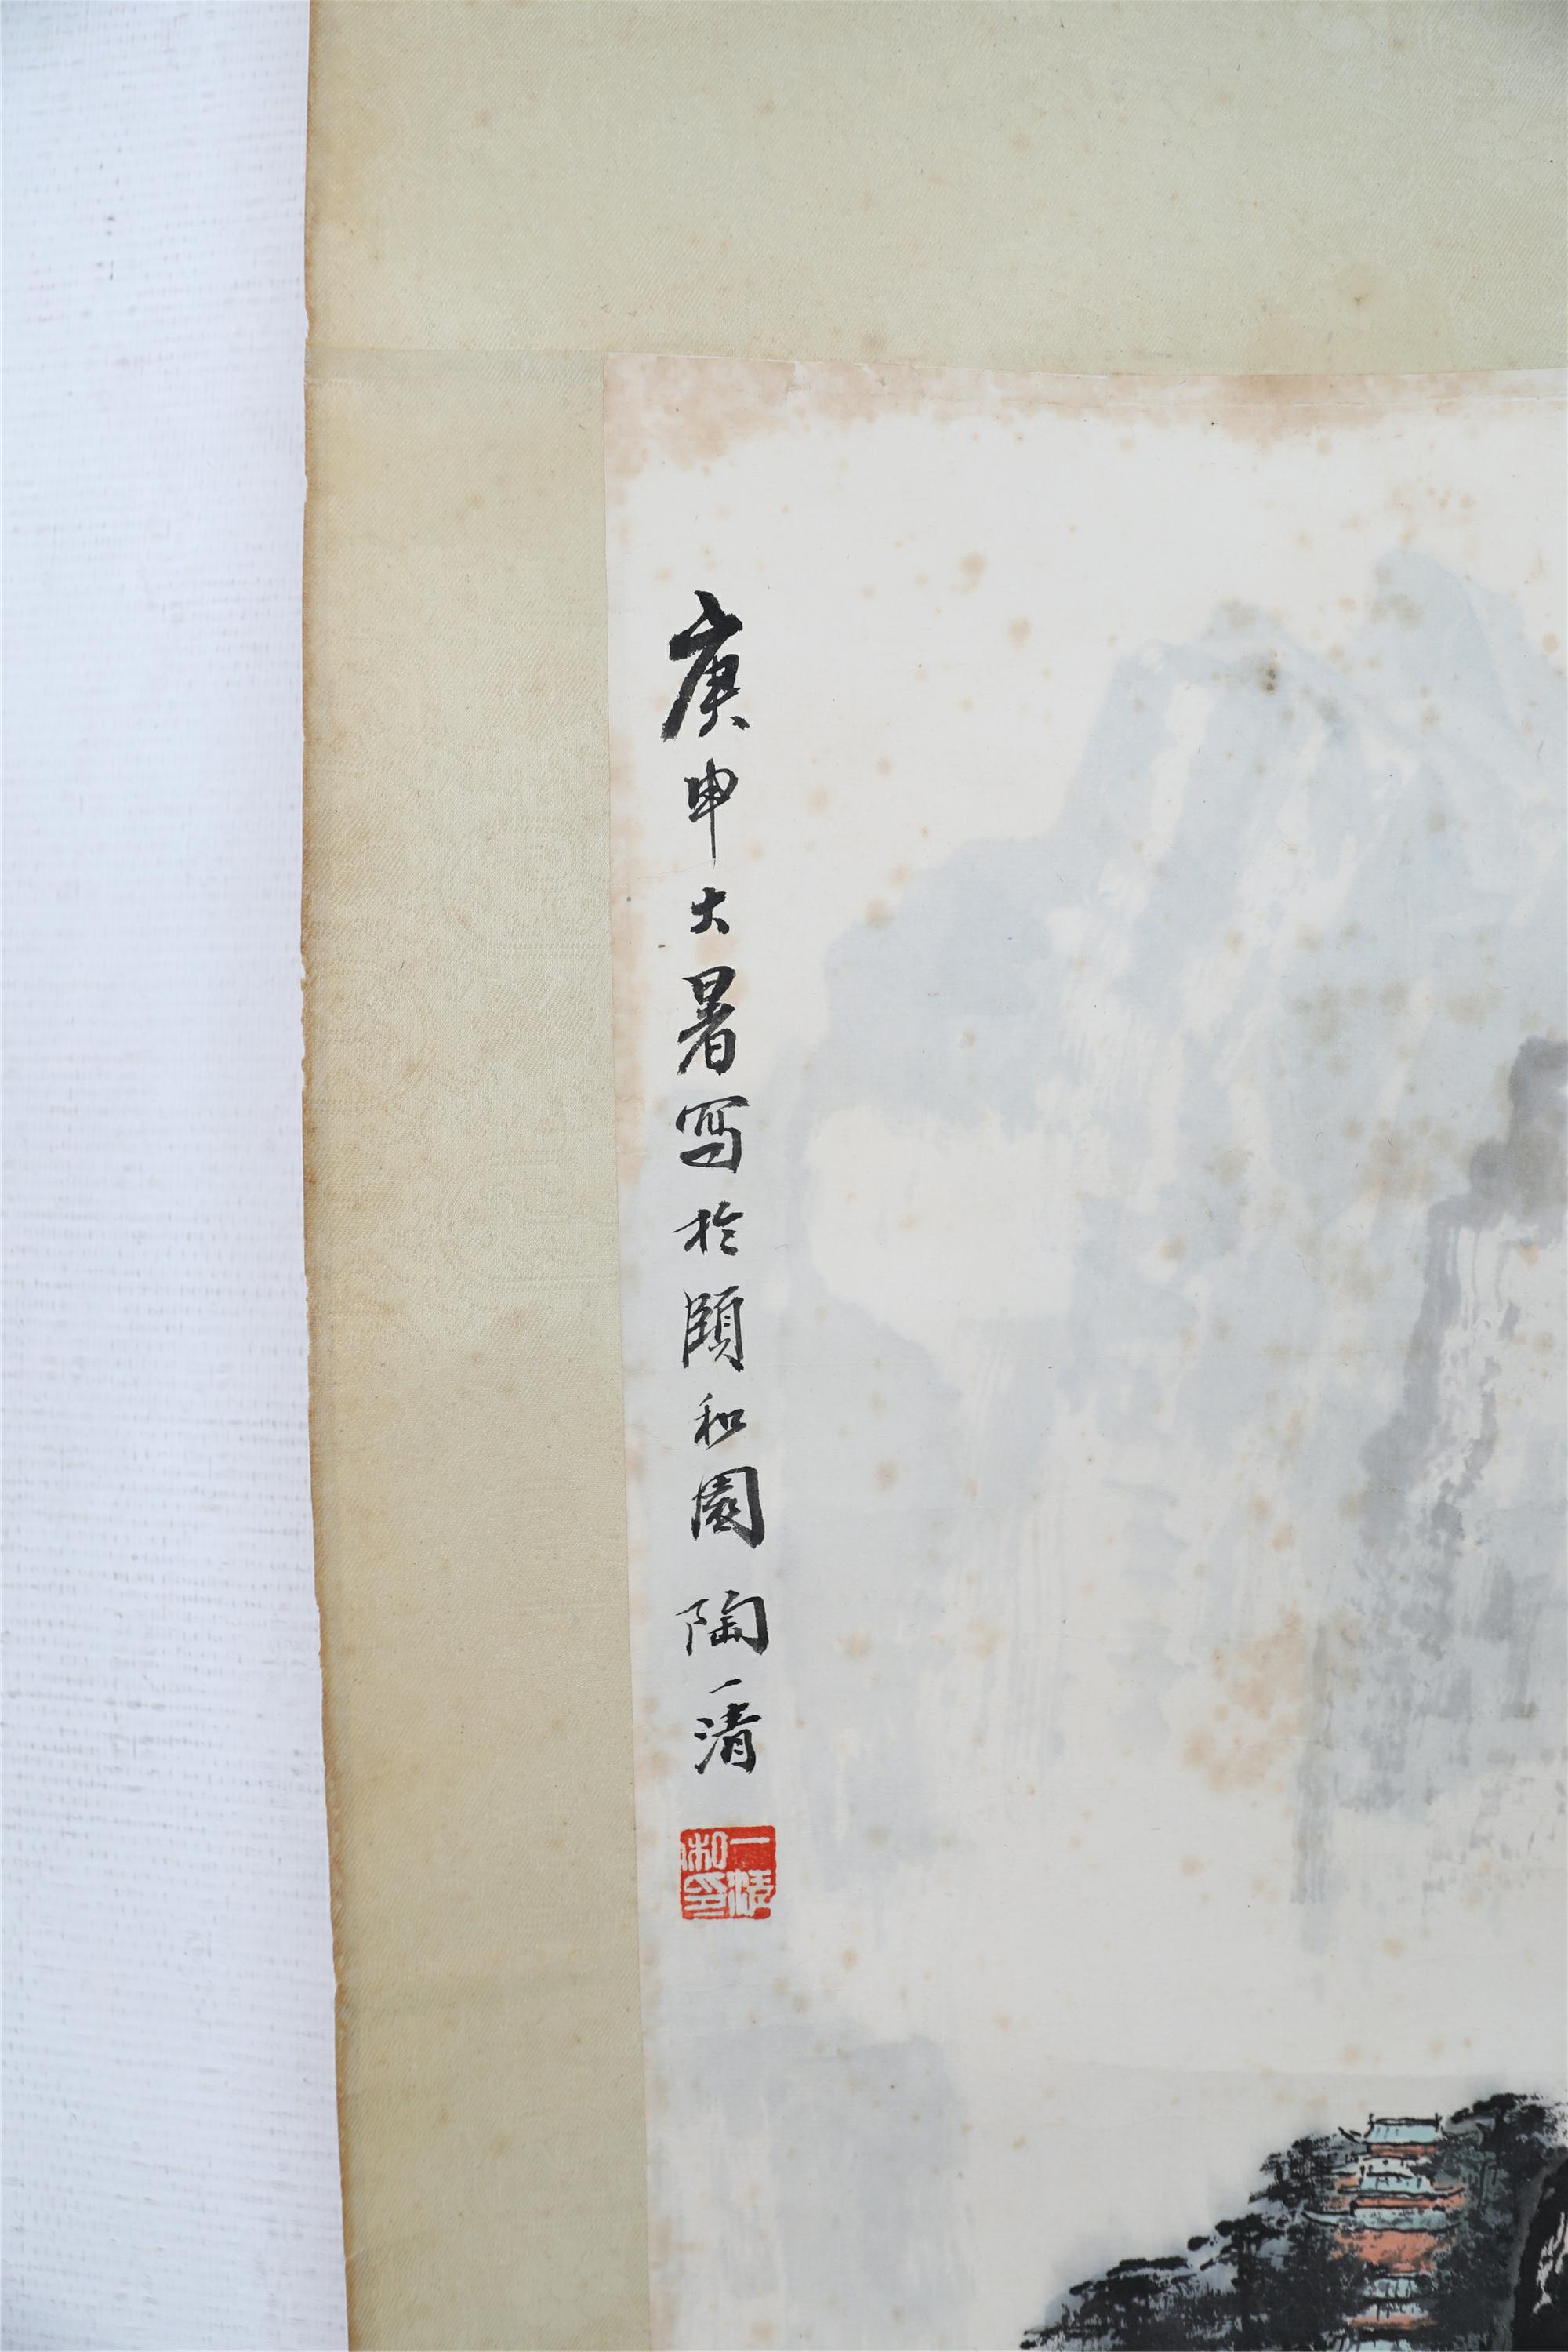 庚申大暑寫於頤和園 陶一清
一清
私印